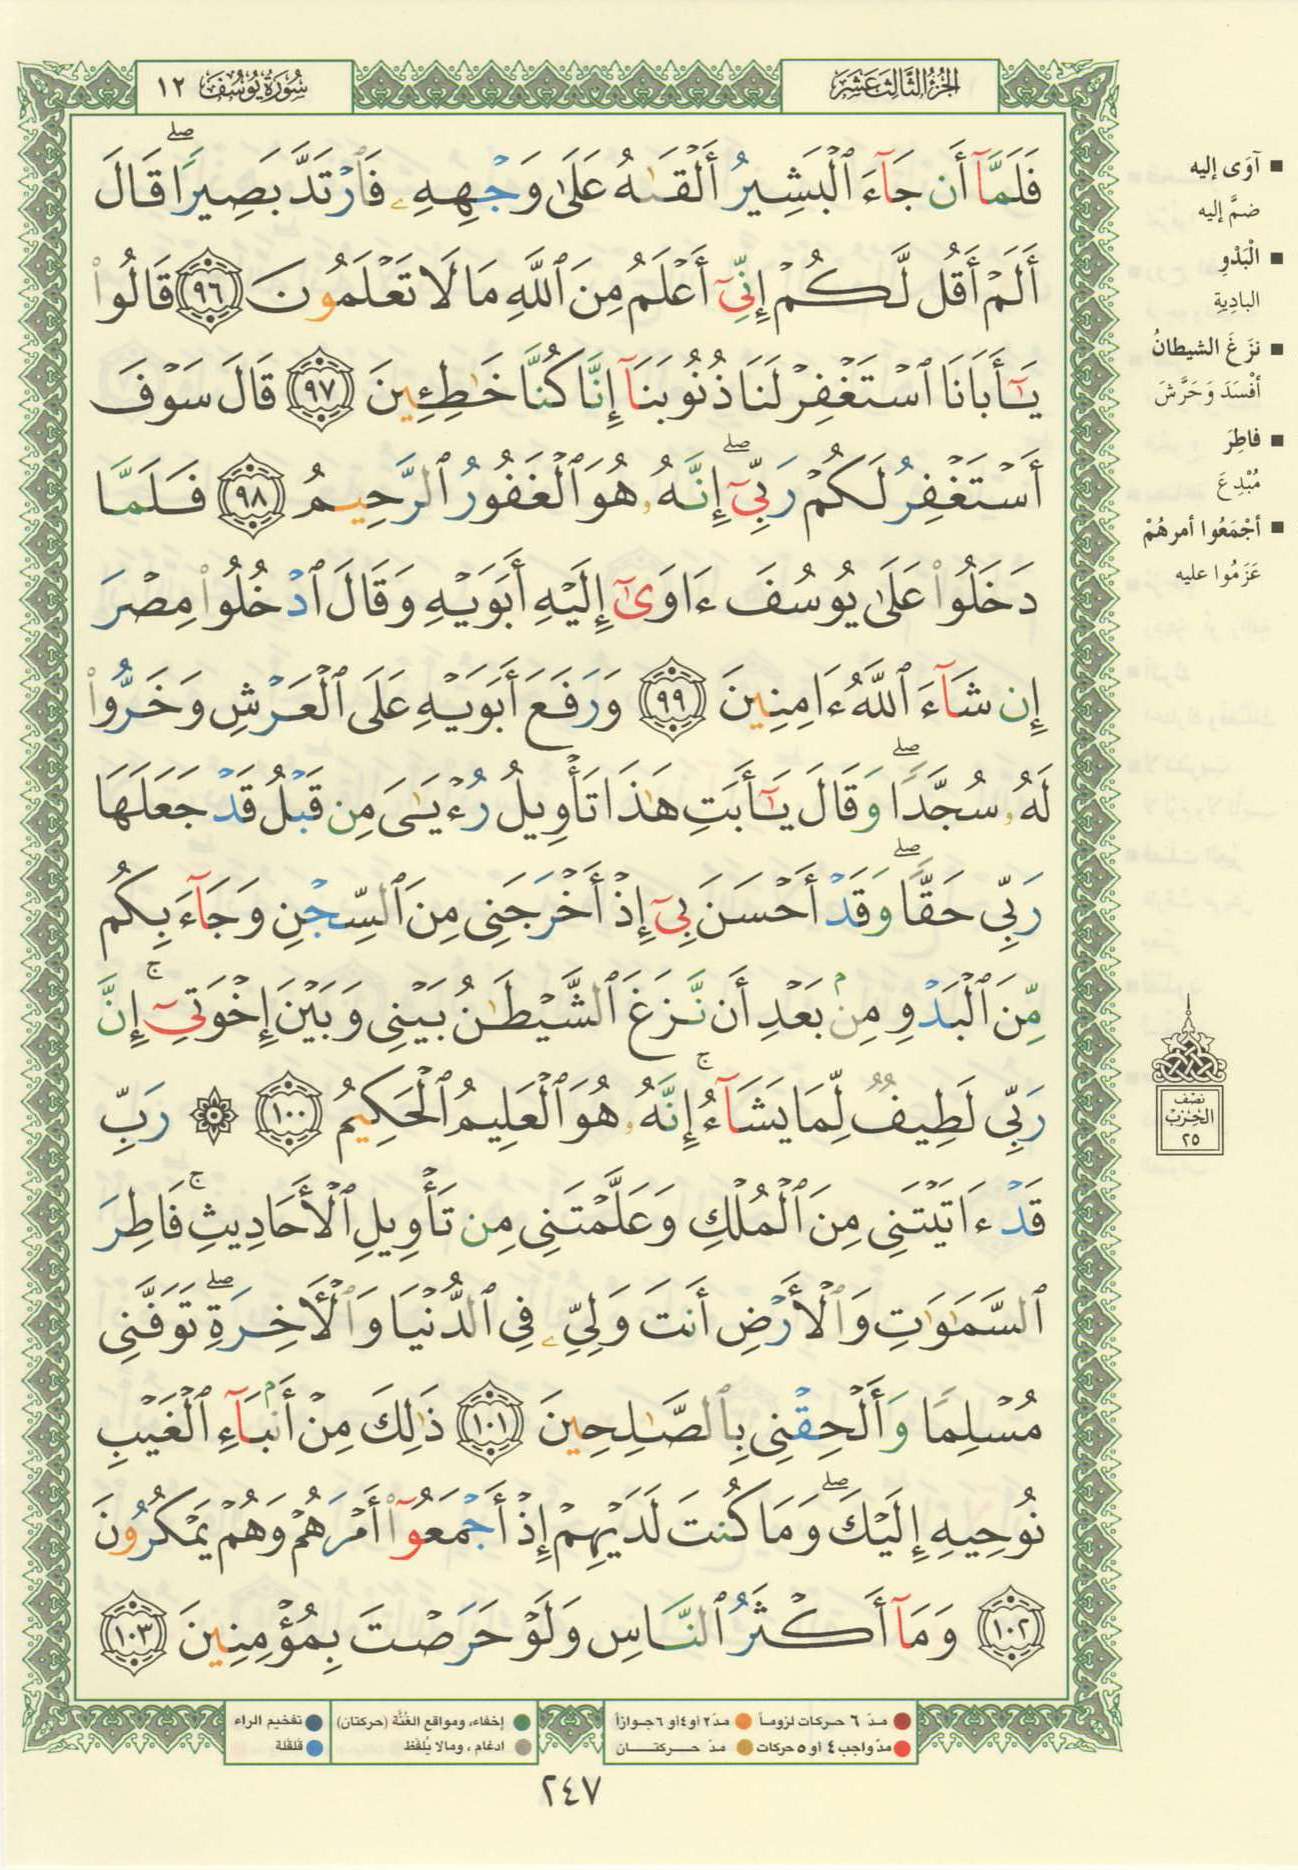 الجزء الثالث عشر
سورة يوسف ١٢
فَلَمَّآ أَن جَآءَ ٱلْبَشِيرُ أَلْقَىٰهُ عَلَىٰ وَجْهِهِۦ فَٱرْتَدَّ بَصِيرًۭا ۖ قَالَ
أَلَمْ أَقُل لَّكُمْ إِنِّىٓ أَعْلَمُ مِنَ ٱللَّهِ مَا لَا تَعْلَمُونَ ٩٦ قَالُوا۟
يَـٰٓأَبَانَا ٱسْتَغْفِرْ لَنَا ذُنُوبَنَآ إِنَّا كُنَّا خَـٰطِـِٔينَ ٩٧ قَالَ سَوْفَ
أَسْتَغْفِرُ لَكُمْ رَبِّىٓ ۖ إِنَّهُۥ هُوَ ٱلْغَفُورُ ٱلرَّحِيمُ ٩٨ فَلَمَّا
دَخَلُوا۟ عَلَىٰ يُوسُفَ ءَاوَىٰٓ إِلَيْهِ أَبَوَيْهِ وَقَالَ ٱدْخُلُوا۟ مِصْرَ
إِن شَآءَ ٱللَّهُ ءَامِنِينَ ٩٩ وَرَفَعَ أَبَوَيْهِ عَلَى ٱلْعَرْشِ وَخَرُّوا۟
لَهُۥ سُجَّدًۭا ۖ وَقَالَ يَـٰٓأَبَتِ هَـٰذَا تَأْوِيلُ رُءْيَـٰىَ مِن قَبْلُ قَدْ جَعَلَهَا
رَبِّى حَقًّۭا ۖ وَقَدْ أَحْسَنَ بِىٓ إِذْ أَخْرَجَنِى مِنَ ٱلسِّجْنِ وَجَآءَ بِكُم
مِّنَ ٱلْبَدْوِ مِنۢ بَعْدِ أَن نَّزَغَ ٱلشَّيْطَـٰنُ بَيْنِى وَبَيْنَ إِخْوَتِىٓ ۚ إِنَّ
رَبِّى لَطِيفٌۭ لِّمَا يَشَآءُ ۚ إِنَّهُۥ هُوَ ٱلْعَلِيمُ ٱلْحَكِيمُ ١٠٠ ۞ رَبِّ
قَدْ ءَاتَيْتَنِى مِنَ ٱلْمُلْكِ وَعَلَّمْتَنِى مِن تَأْوِيلِ ٱلْأَحَادِيثِ ۚ فَاطِرَ
ٱلسَّمَـٰوَٰتِ وَٱلْأَرْضِ أَنتَ وَلِىِّۦ فِى ٱلدُّنْيَا وَٱلْـَٔاخِرَةِ ۖ تَوَفَّنِى
مُسْلِمًۭا وَأَلْحِقْنِى بِٱلصَّـٰلِحِينَ ١٠١ ذَٰلِكَ مِنْ أَنۢبَآءِ ٱلْغَيْبِ
نُوحِيهِ إِلَيْكَ ۖ وَمَا كُنتَ لَدَيْهِمْ إِذْ أَجْمَعُوٓا۟ أَمْرَهُمْ وَهُمْ يَمْكُرُونَ
١٠٢ وَمَآ أَكْثَرُ ٱلنَّاسِ وَلَوْ حَرَصْتَ بِمُؤْمِنِينَ ١٠٣
■ آوَى إليه
ضمَّ إليه
■ الْبَدْوِ
البادِيةِ
■ نزَغَ الشيطانُ
أفْسَدَ وَحَرَّشَ
■ فاطِرَ
مُبْدِعَ
■ أجْمَعُوا أمرهُمْ
عَزَمُوا عليه
نصف
الحزب
٢٥
مدّ ٦ حركات لزوماً ● مدّ ٢ أو ٤ أو ٦ جوازاً
مدّ واجب ٤ أو ٥ حركات ● مدّ حركتان
إخفاء، ومواقع الغُنَّة (حركتان) ● تفخيم الراء
ادغام، ومالا يُلفَظ ● قلقلة
٢٤٧